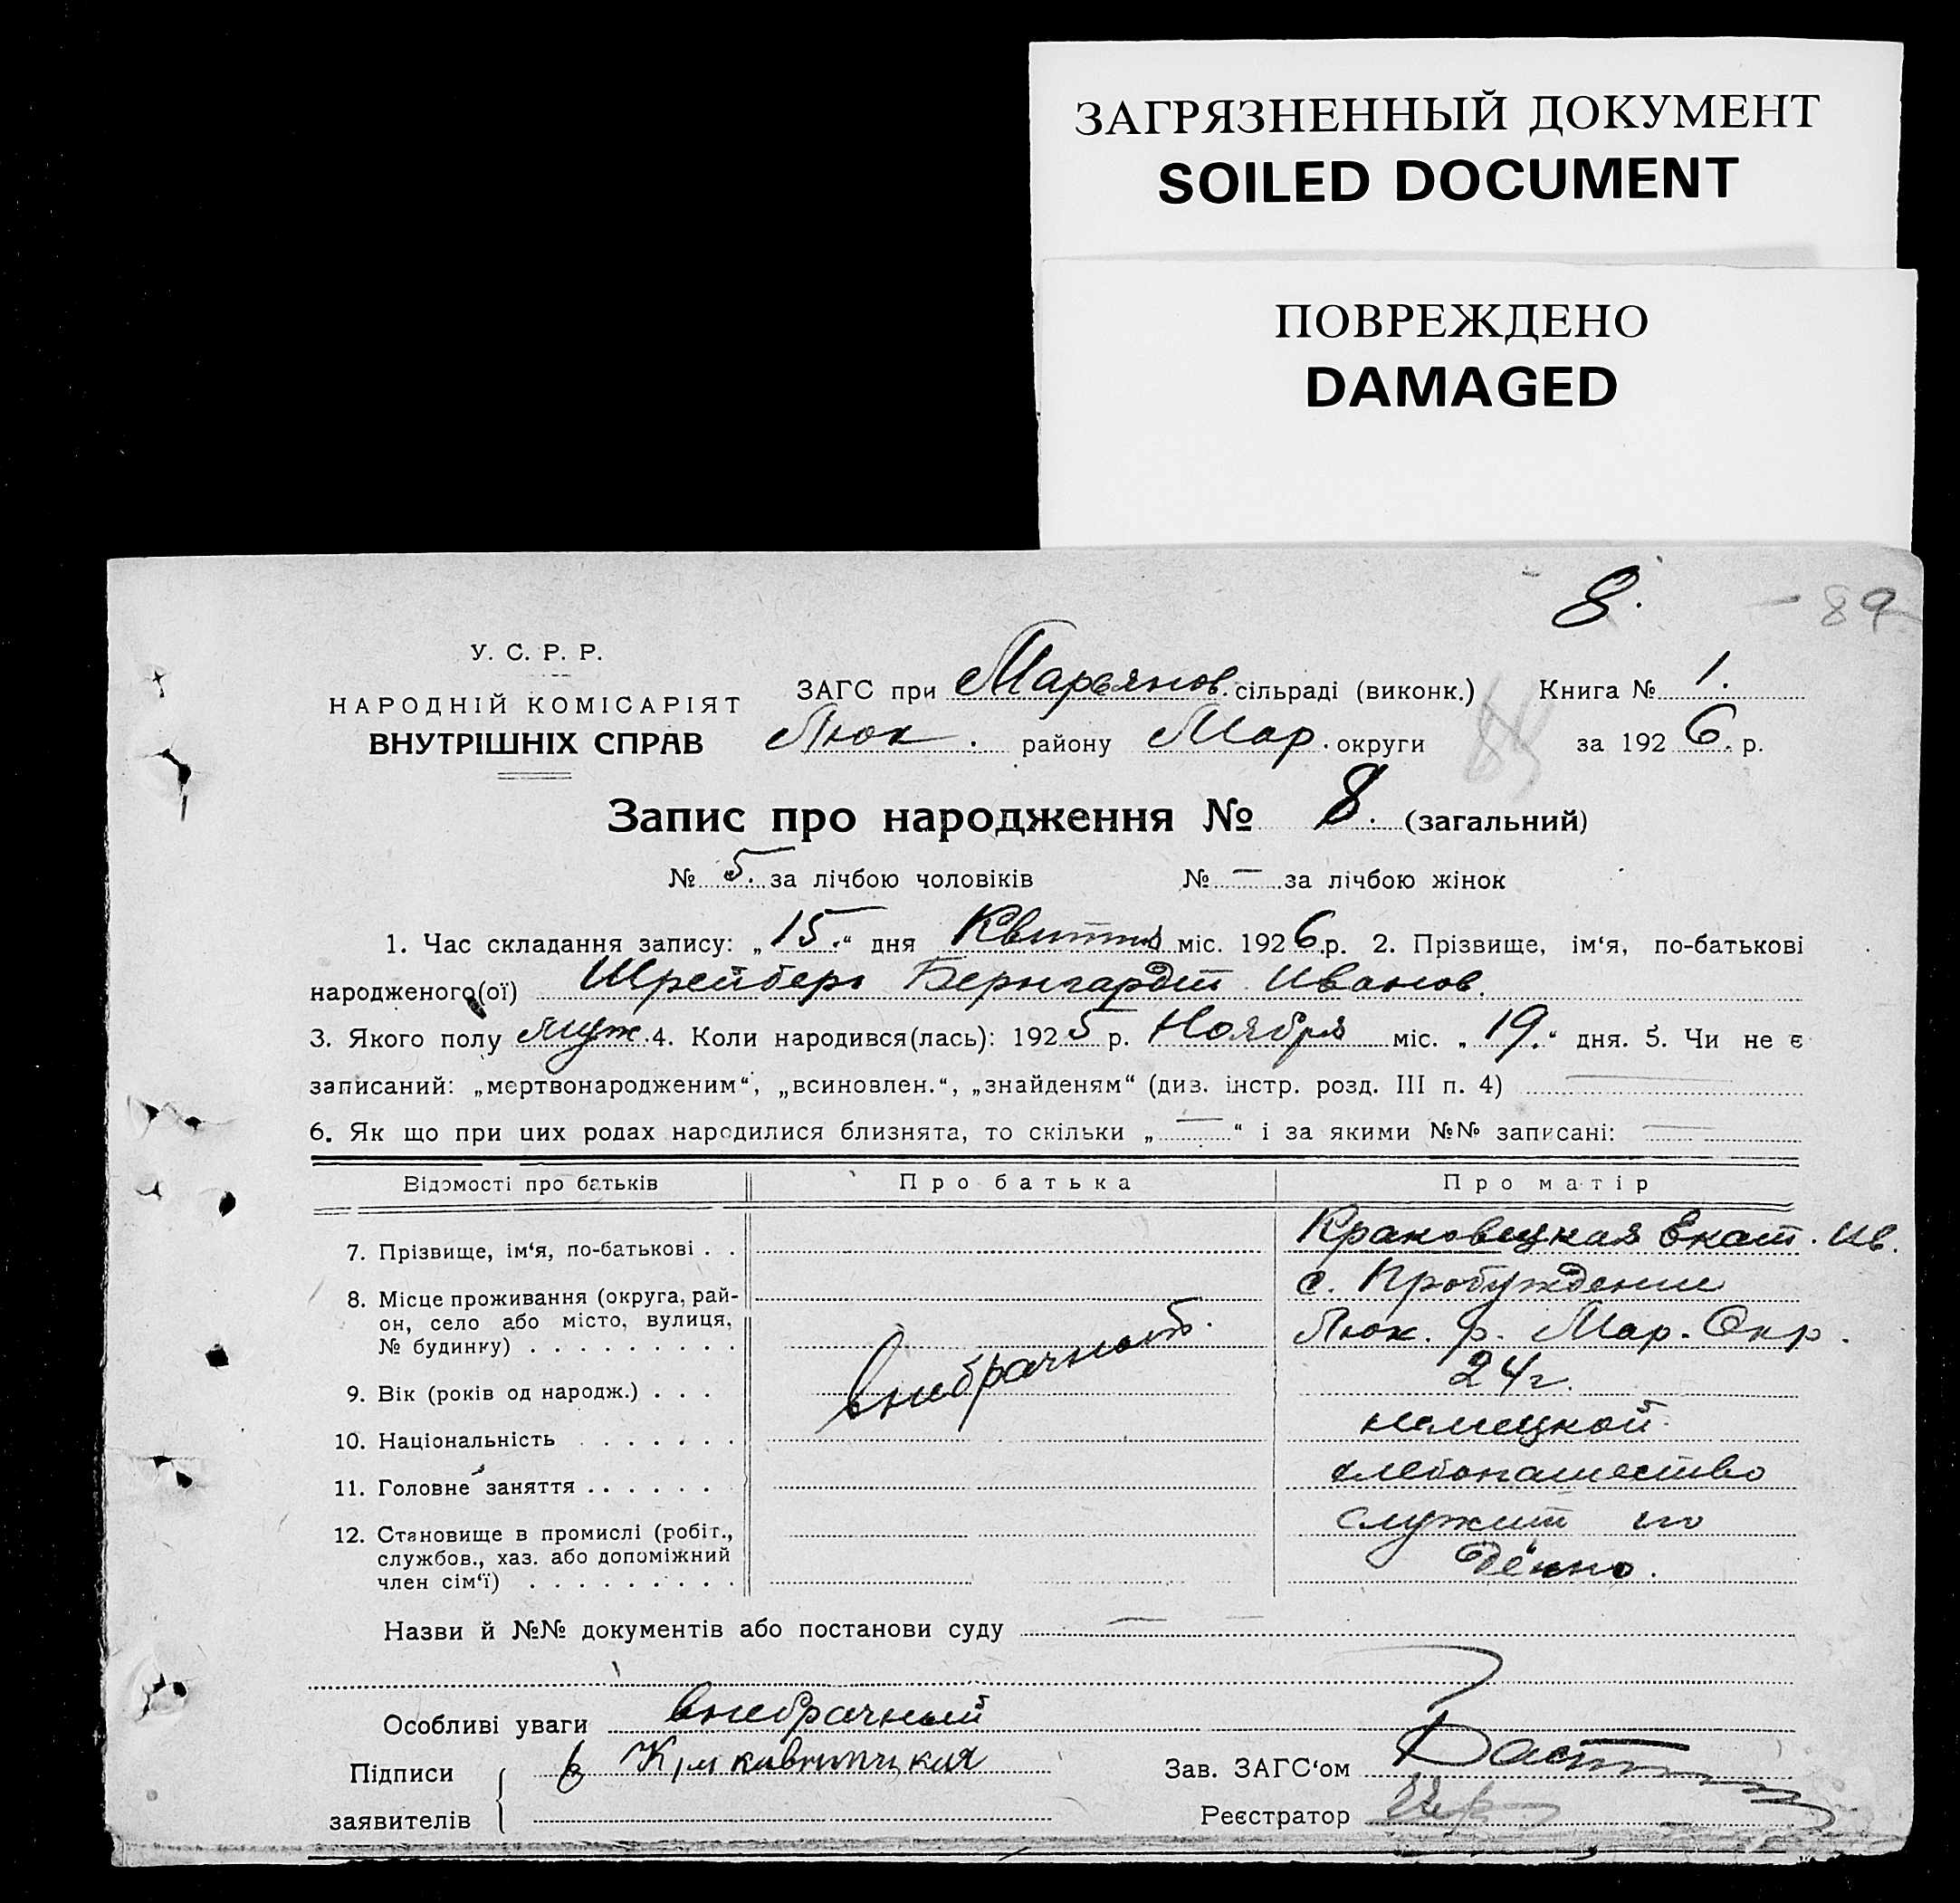 ЗАГРЯЗНЕННЫЙ ДОКУМЕНТ
SOILED DOCUMENT
ПОВРЕЖДЕНО
DAMAGED
8. - 89
У. С. Р. Р.
НАРОДНІЙ КОМІСАРІЯТ
ВНУТРІШНІХ СПРАВ
ЗАГС при Марьянов. сільраді (виконк.) Книга № 1.
Люк. району Мар. округи за 1926. р.
Запис про народження № 8. (загальний)
№ 5. за лічбою чоловіків № — за лічбою жінок
1. Час складання запису: „15.“ дня Квитня міс. 1926.р. 2. Прізвище, ім‘я, по-батькові
народженого(ої) Шрейбер Бернгардт Иванов.
3. Якого полу муж. 4. Коли народився(лась): 1925 р. Ноября міс. „19.“ дня. 5. Чи не є
записаний: „мертвонародженим“, „всиновлен.“, „знайденям“ (див. інстр. розд. III п. 4) —
6. Як що при цих родах народилися близнята, то скільки „—“ і за якими №№ записані: —
Відомості про батьків Про батька Про матір
7. Прізвище, ім‘я, по-батькові . . Краковецкая Екат. Ив.
8. Місце проживання (округа, рай-
он, село або місто, вулиця,
№ будинку) . . . . . . . . .
с. Пробуждение
Люк. р. Мар. Окр.
внебрачный.
9. Вік (років од народж.) . . . 24 г.
10. Національність . . . . . . . немецкой
11. Головне заняття . . . . . . хлебопашество
12. Становище в промислі (робіт.,
службов., хаз. або допоміжний
член сім‘ї) . . . . . . . . .
служит по
Назви й №№ документів або постанови суду — —
Особливі уваги внебрачный
Підписи
заявителів
Зав. ЗАГС‘ом
Реєстратор